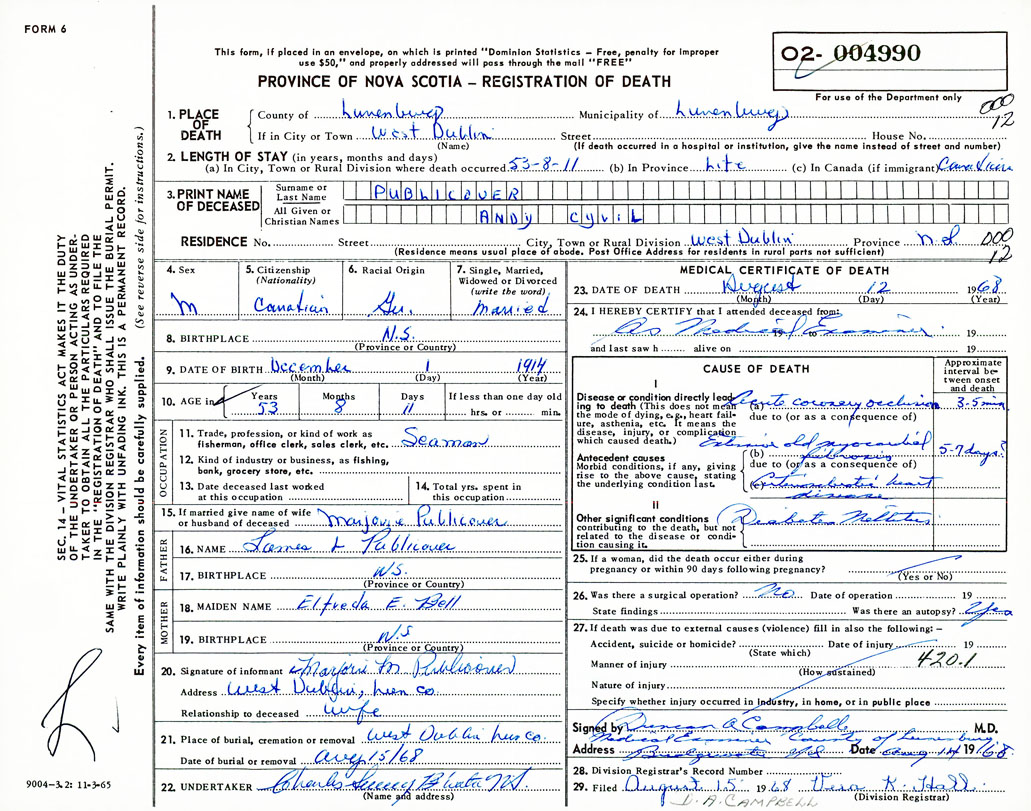 FORM 6
This form, if placed in an envelope, on which is printed "Dominion Statistics – Free, penalty for improper
use $50," and properly addressed will pass through the mail "FREE"
O2- 004990
PROVINCE OF NOVA SCOTIA – REGISTRATION OF DEATH
For use of the Department only
000
12
1. PLACE OF DEATH
County of Lunenburg Municipality of Lunenburg
If in City or Town West Dublin Street House No.
(Name) (If death occurred in a hospital or institution, give the name instead of street and number)
2. LENGTH OF STAY (in years, months and days)
(a) In City, Town or Rural Division where death occurred 53-8-11 (b) In Province Life (c) In Canada (if immigrant) Canadian
3. PRINT NAME OF DECEASED
Surname or Last Name PUBLICOVER
All Given or Christian Names ANDY CYVIL
RESIDENCE No. Street City, Town or Rural Division West Dublin Province N.S. 000
12
(Residence means usual place of abode. Post Office Address for residents in rural parts not sufficient)
4. Sex
M
5. Citizenship
(Nationality)
Canadian
6. Racial Origin
Ger.
7. Single, Married,
Widowed or Divorced
(write the word)
Married
8. BIRTHPLACE N.S.
(Province or Country)
9. DATE OF BIRTH December 1 1914
(Month) (Day) (Year)
10. AGE in
Years Months Days If less than one day old
53 8 11 hrs. or min.
OCCUPATION
11. Trade, profession, or kind of work as
fisherman, office clerk, sales clerk, etc. Seaman
12. Kind of industry or business, as fishing,
bank, grocery store, etc.
13. Date deceased last worked
at this occupation
14. Total yrs. spent in
this occupation
15. If married give name of wife
or husband of deceased Marjorie Publicover
FATHER
16. NAME James L Publicover
17. BIRTHPLACE N.S.
(Province or Country)
MOTHER
18. MAIDEN NAME Elfreda E. Bell
19. BIRTHPLACE N.S
(Province or Country)
20. Signature of informant Marjorie M Publicover
Address West Dublin, Lun co
Relationship to deceased wife
21. Place of burial, cremation or removal West Dublin Lun co.
Date of burial or removal Aug 15/68
22. UNDERTAKER Charles
(Name and address)
MEDICAL CERTIFICATE OF DEATH
23. DATE OF DEATH August 12 1968
(Month) (Day) (Year)
24. I HEREBY CERTIFY that I attended deceased from:
As Medical Examiner 19 to 19
and last saw h alive on 19
CAUSE OF DEATH
Approximate
interval be-
tween onset
and death
I
Disease or condition directly lead-
ing to death (This does not mean
the mode of dying, e.g., heart fail-
ure, asthenia, etc. It means the
disease, injury, or complication
which caused death.)
(a) Acute coronary occlusion 3-5 min
due to (or as a consequence of)
Antecedent causes
Morbid conditions, if any, giving
rise to the above cause, stating
the underlying condition last.
Extensive old myocardial
(b) fibrosis 5-7 days?
due to (or as a consequence of)
(c) heart
disease
II
Other significant conditions
contributing to the death, but not
related to the disease or condi-
tion causing it.
Diabetes Mellitus
25. If a woman, did the death occur either during
pregnancy or within 90 days following pregnancy?
(Yes or No)
26. Was there a surgical operation? No Date of operation 19
State findings Was there an autopsy? Yes
27. If death was due to external causes (violence) fill in also the following: –
Accident, suicide or homicide? Date of injury 19
(State which)
Manner of injury 420.1
(How sustained)
Nature of injury
Specify whether injury occurred in Industry, in home, or in public place
Signed by Duncan A Campbell M.D.
Medical Examiner County of Lunenburg
Address Bridgewater NS Date Aug 14 19/68.
28. Division Registrar's Record Number
29. Filed August 15 1968 Vera K. Hall
(Division Registrar)
D. A. CAMPBELL
SEC. 14 – VITAL STATISTICS ACT MAKES IT THE DUTY
OF THE UNDERTAKER OR PERSON ACTING AS UNDER-
TAKER TO OBTAIN ALL THE PARTICULARS REQUIRED
IN THE "REGISTRATION OF DEATH" AND TO FILE THE
SAME WITH THE DIVISION REGISTRAR WHO SHALL ISSUE THE BURIAL PERMIT.
WRITE PLAINLY WITH UNFADING INK. THIS IS A PERMANENT RECORD.
Every item of information should be carefully supplied. (See reverse side for instructions.)
9004-3.2: 11-3-65